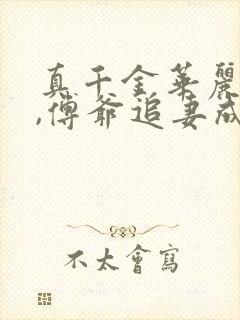 真千金華麗
,傅爺追妻成
不太會寫